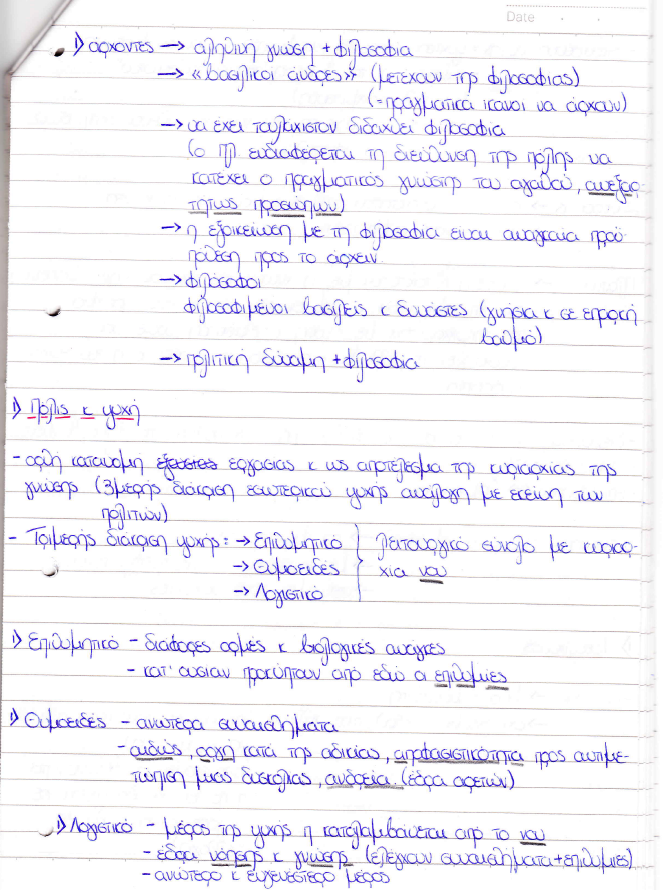 Date . .
άρχοντες → αληθινή γνώση + φιλοσοφία
→ «βασιλικοί άνδρες» (μετέχουν της φιλοσοφίας)
(= πραγματικά ικανοί να άρχουν)
→ να έχει τουλάχιστον διδαχθεί φιλοσοφία
(ο Πλ. ενδιαφέρεται τη διεύθυνση της πόλης να
κατέχει ο πραγματικός γνώστης του αγαθού, ανεξαρ-
τήτως προσώπων)
→ η εξοικείωση με τη φιλοσοφία είναι αναγκαία προϋ-
πόθεση προς το άρχειν.
→ φιλόσοφοι
φιλοσοφημένοι βασιλείς κ δυνάστες (γνήσια κ σε επαρκή
βαθμό)
→ πολιτική δύναμη + φιλοσοφία
Πόλις κ ψυχή
- ορθή κατανομή εξουσίας εργασίας κ ως αποτέλεσμα της κυριαρχίας της
γνώσης (3μερής διάκριση εσωτερικού ψυχής ανάλογη με εκείνη των
πολιτών)
- Τριμερής διάκριση ψυχής: → Επιθυμητικό } λειτουργικό σύνολο με κυριαρ-
→ Θυμοειδές } χία νου
→ Λογιστικό
Επιθυμητικό - διάφορες ορμές κ βιολογικές ανάγκες
- κατ' ουσίαν προκύπτουν από εδώ οι επιθυμίες
Θυμοειδές - ανώτερα συναισθήματα
- αιδώς, οργή κατά της αδικίας, αποφασιστικότητα προς αντιμε-
τώπιση μιας δυσκολίας, ανδρεία. (έδρα αρετών)
Λογιστικό - μέρος της ψυχής η καταλαμβάνεται από το νου
- έδρα νόησης κ γνώσης (ελέγχουν συναισθήματα + επιθυμίες)
- ανώτερο κ ευγενέστερο μέρος